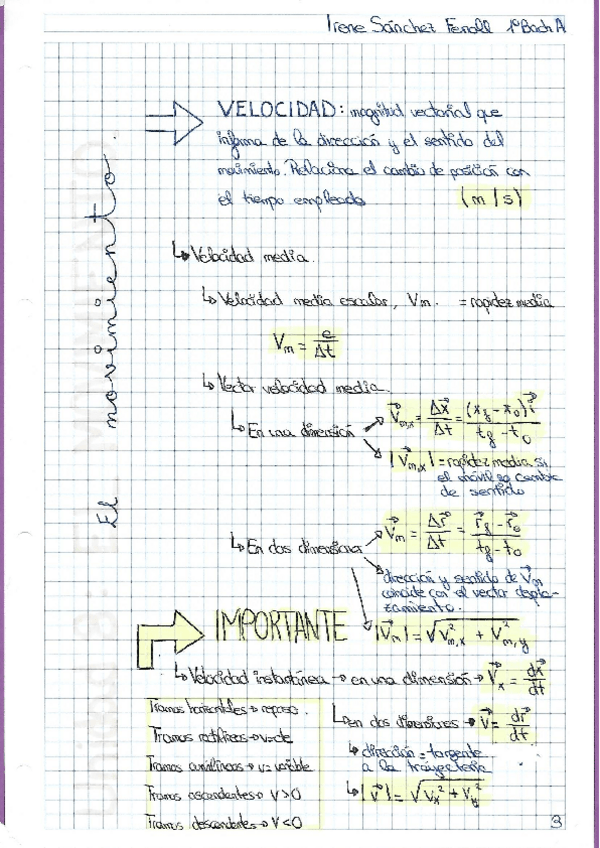 Irene Sánchez Fenoll 1º Bach A
El movimiento.
VELOCIDAD: magnitud vectorial que
informa de la dirección y el sentido del
movimiento. Relaciona el cambio de posición con
el tiempo empleado (m/s)
↳ Velocidad media.
↳ Velocidad media escalar, Vm. = rapidez media
Vm = e/Δt
↳ Vector velocidad media.
↳ En una dimensión → V⃗m,x = Δx⃗/Δt = (xf - x0)i⃗ / tf - t0
|V⃗m,x| = rapidez media si
el móvil no cambia
de sentido
↳ En dos dimensiones → V⃗m = Δr⃗/Δt = r⃗f - r⃗0 / tf - t0
dirección y sentido de V⃗m
coincide con el vector despla-
zamiento.
|V⃗m| = √V²m,x + V²m,y
IMPORTANTE
↳ Velocidad instantánea → en una dimensión → V⃗x = dx⃗/dt
↳ en dos dimensiones → V⃗ = dr⃗/dt
↳ dirección = tangente
a la trayectoria
↳ |V⃗| = √Vx² + Vy²
Tramos horizontales → reposo.
Tramos rectilíneos → v=cte
Tramos curvilíneos → v= variable
Tramos ascendentes → V>0
Tramos descendentes → V<0
3